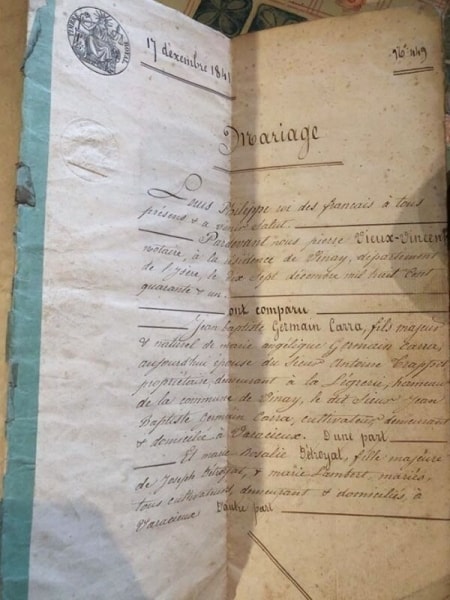 17 décembre 1841
N° 449
Mariage
Louis Philippe roi des français à tous
présens & a venir Salut.
Pardevant nous pierre Vieux-Vincent
notaire, à la résidence de Vinay, département
de l'Isère, le dix Sept décembre mil huit Cent
quarante & un.
ont comparu
Jean Baptiste Germain Carra, fils majeur
& naturel de marie angélique Germain Carra,
aujourd'hui épouse du Sieur Antoine
propriétaire demeurant à la hameau
de la commune de Vinay, le dit Sieur Jean
Baptiste Germain Carra, cultivateur, demeurant
& domicilié à Varacieux. D'une part
Et marie Rosalie Détroyat, fille majeure
de Joseph Détroyat, & marie Lambert, mariés,
tous cultivateurs, demeurant & domiciliés, à
Varacieux. D'autre part